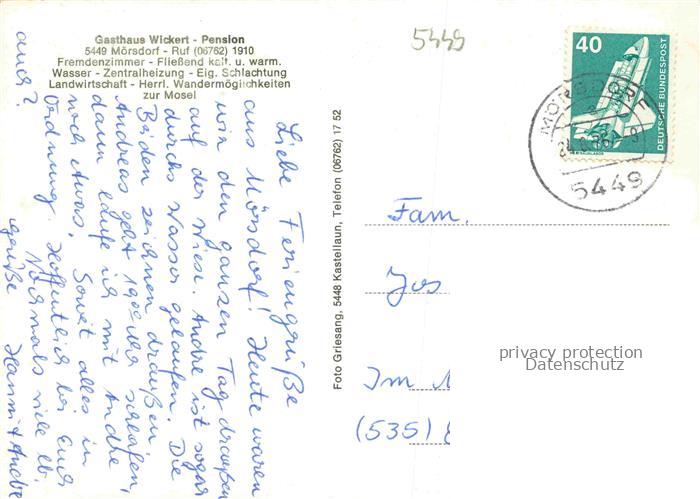 Gasthaus Wickert - Pension
5449 Mörsdorf - Ruf (06762) 1910
Fremdenzimmer - Fließend kalt. u. warm.
Wasser - Zentralheizung - Eig. Schlachtung
Landwirtschaft - Herrl. Wandermöglichkeiten
zur Mosel
5449
40
DEUTSCHE BUNDESPOST
MÖRSDORF
5449
Liebe Feriengrüße
aus Mörsdorf! Heute waren
wir den ganzen Tag draußen
auf der Wiese. Andre ist sogar
durchs Wasser gelaufen. Die
Beiden zeichnen draußen.
Andreas geht 19⁰⁰ Uhr schlafen,
dann laufe ich mit Andre
noch etwas. Soweit alles in
Ordnung. Hoffentlich bei Euch
auch? Nochmals viele lb.
Grüße Hanni + Andre
Foto Griesang, 5448 Kastellaun, Telefon (06762) 17 52
Fam.
Jos
Im
(535)
privacy protection
Datenschutz